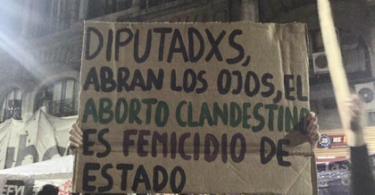 DIPUTADXS,
ABRAN LOS OJOS, EL
ABORTO CLANDESTINO
ES FEMICIDIO DE
ESTADO